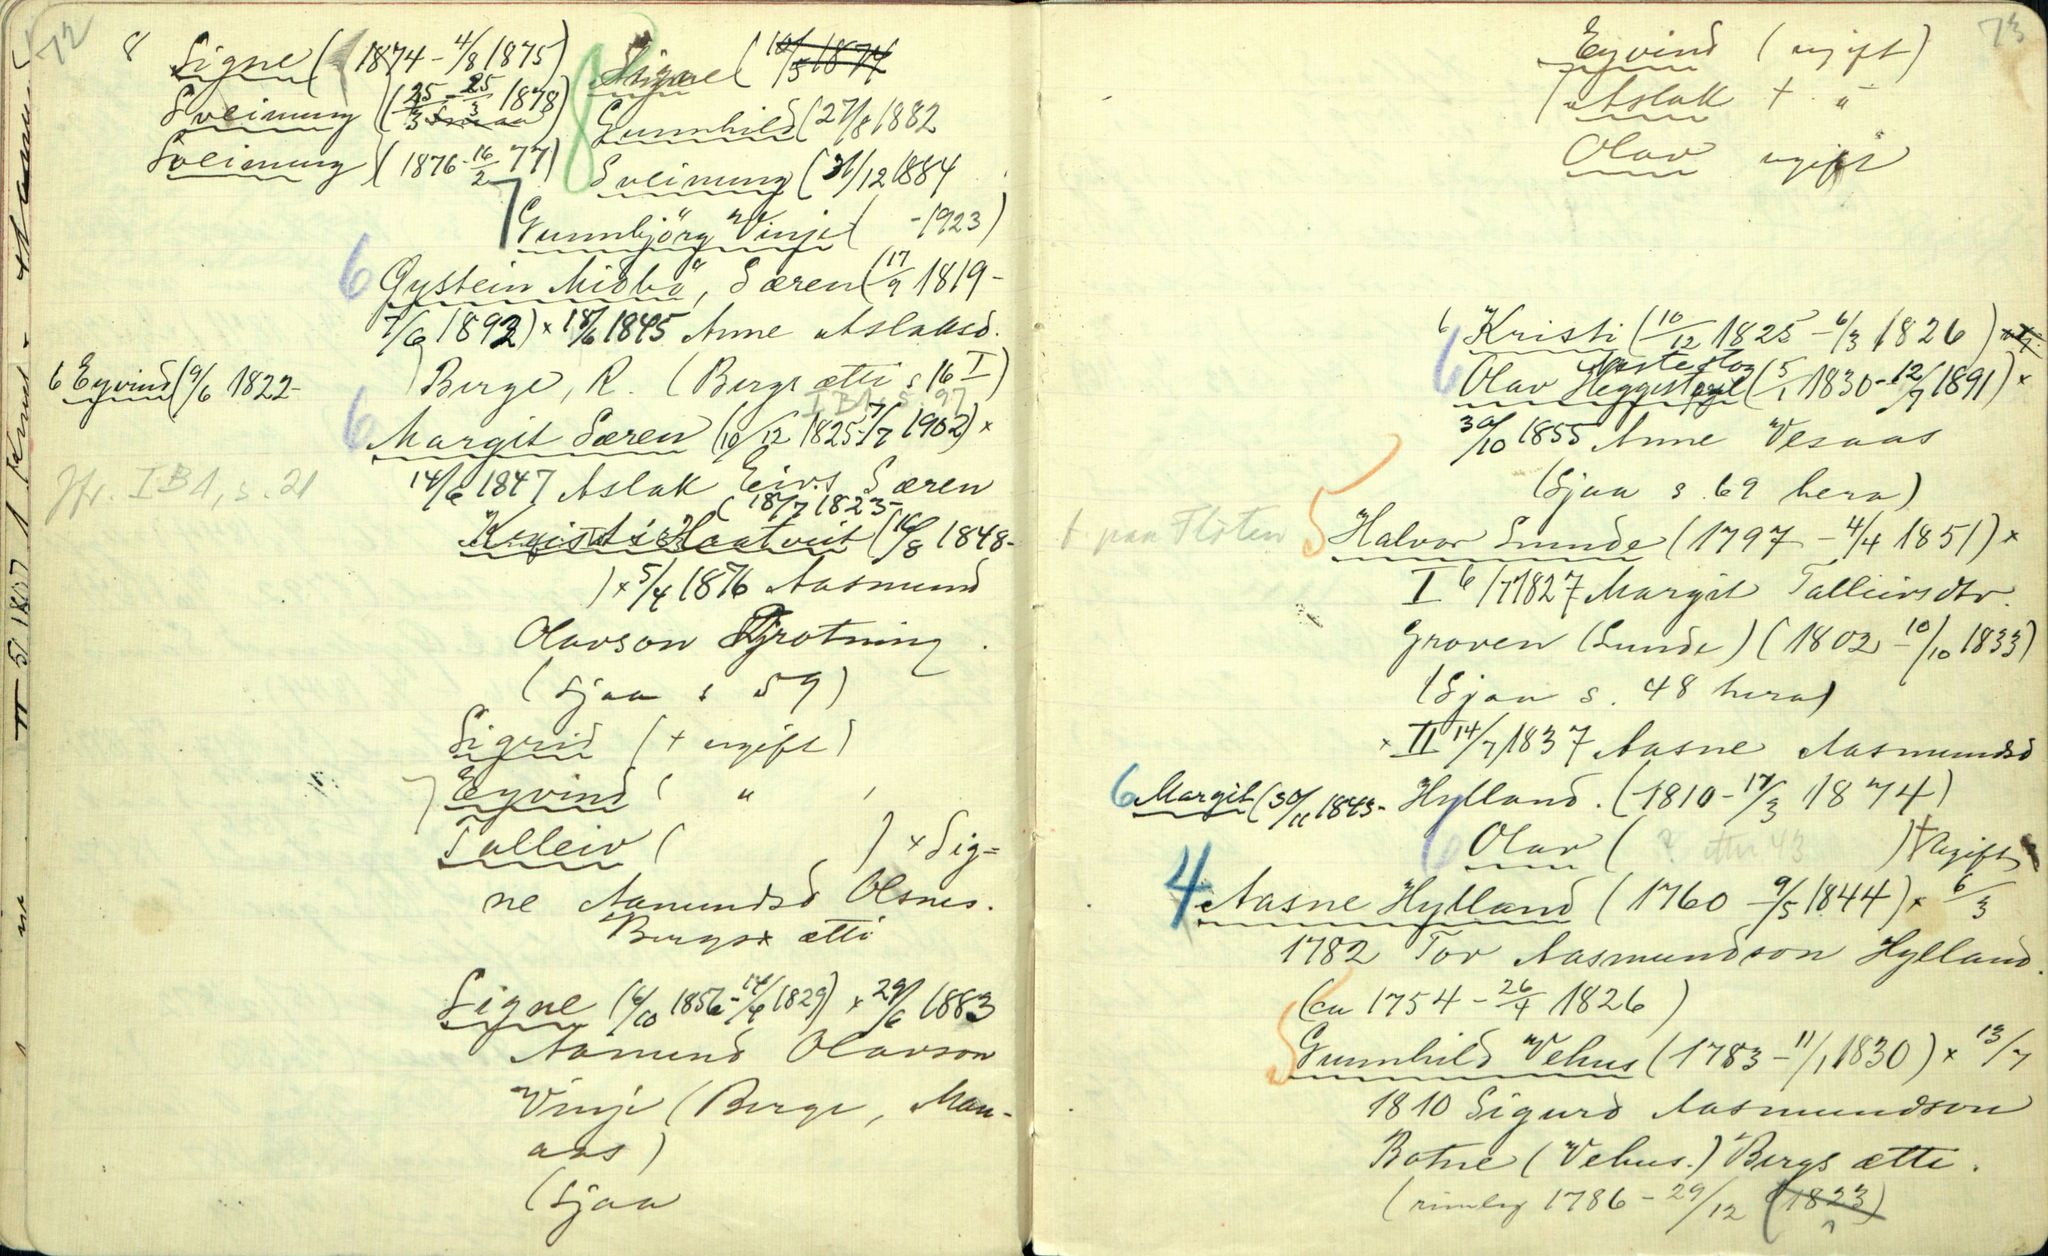 72
8 Signe ( 1874 - 4/8 1875)
Sveinung (25/3 - 25/3 1878)
Sveinung (1876 - 16/2 77)
8 Signe (10/5 1874
Gunnhild (27/8 1882
Sveinung (31/12 1884
7 Gunnbjörg Vinje ( -1923)
6 Øystein Midbö, Særen (17/9 1819-
7/6 1892) × 18/6 1845 Anne Aslaksd.
Berge, R. (Bergs ætti s 16 I)
I B1, s. 97
6 Eyvind (9/6 1822-
6 Margit Særen (10/12 1825 - 7/7 1902) ×
14/6 1847 Aslak Eivs. Særen
(18/7 1823-
Jfr. I B1, s. 21
Kristi Haatveit (16/8 1848-
) × 5/4 1876 Aasmund
Olavson Grotning.
(sjaa s 59)
Sigrid (+ ugift)
7 Eyvind ( " ,
Talleiv ( ) × Sig=
ne Aamundsd Olsnes.
Bergs ætti
Signe (6/10 1856 - 14/6 1829) × 29/6 1883
Aamund Olavson
Vinje (Berge, Man-
aas)
(sjaa
73
Eyvind (ugift)
Aslak + "
Olav ugift
6 Kristi (10/12 1825 - 6/3 1826)
6 Olav Heggistoyl (5/1 1830 - 12/7 1891) ×
30/10 1855 Anne Vesaas
(Sjaa s. 69 hera)
+ paa Flöten
5 Halvor Lunde (1797 - 4/4 1851) ×
I 6/7 1827 Margit Talleivsdtr.
Groven (Lunde) (1802 - 10/10 1833)
(Sjaa s. 48 hera)
× II 14/7 1837 Aasne Aasmundsd
Hylland. (1810 - 17/3 1874)
6 Margit (30/11 1843-
6 Olav ( ? etter 43 ) + Ugift
4 Aasne Hylland (1760 - 9/5 1844) × 6/3
1782 Tor Aasmundson Hylland.
(ca 1754 - 26/4 1826)
5 Gunnhild Vehus (1783 - 11/1 1830) × 13/7
1810 Sigurd Aasmundson
Botne (Vehus.) Bergs ætti.
(rimleg 1786 - 29/12 (1823)